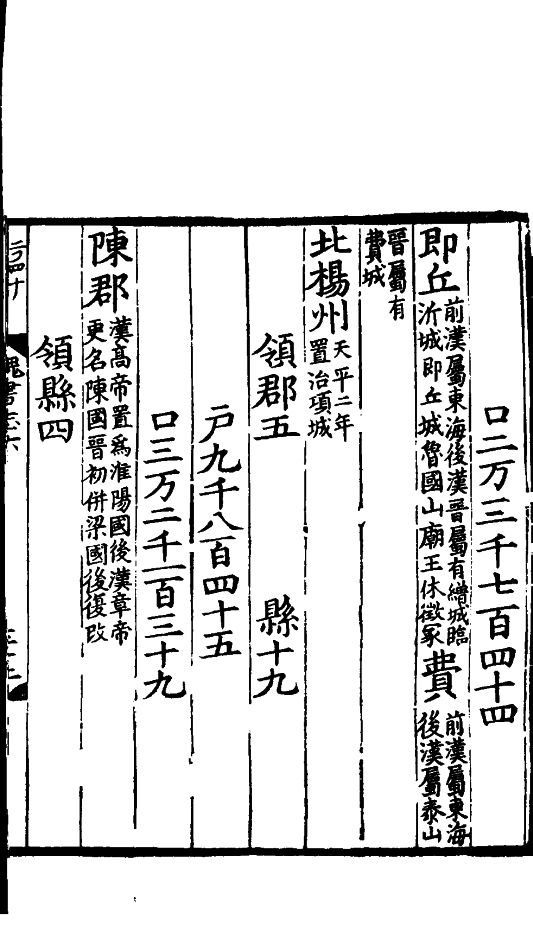 口二万三千七百四十四
即丘前漢屬東海後漢晉屬有繒城臨
沂城即丘城魯國山廟王休徵冢費前漢屬東海
後漢屬泰山
晉屬有
費城
北楊州天平二年
置治項城
領郡五 縣十九
戸九千八百四十五
口三万二千一百三十九
陳郡漢高帝置為淮陽國後漢章帝
更名陳國晉初併梁國後復改
領縣四
魏書志六